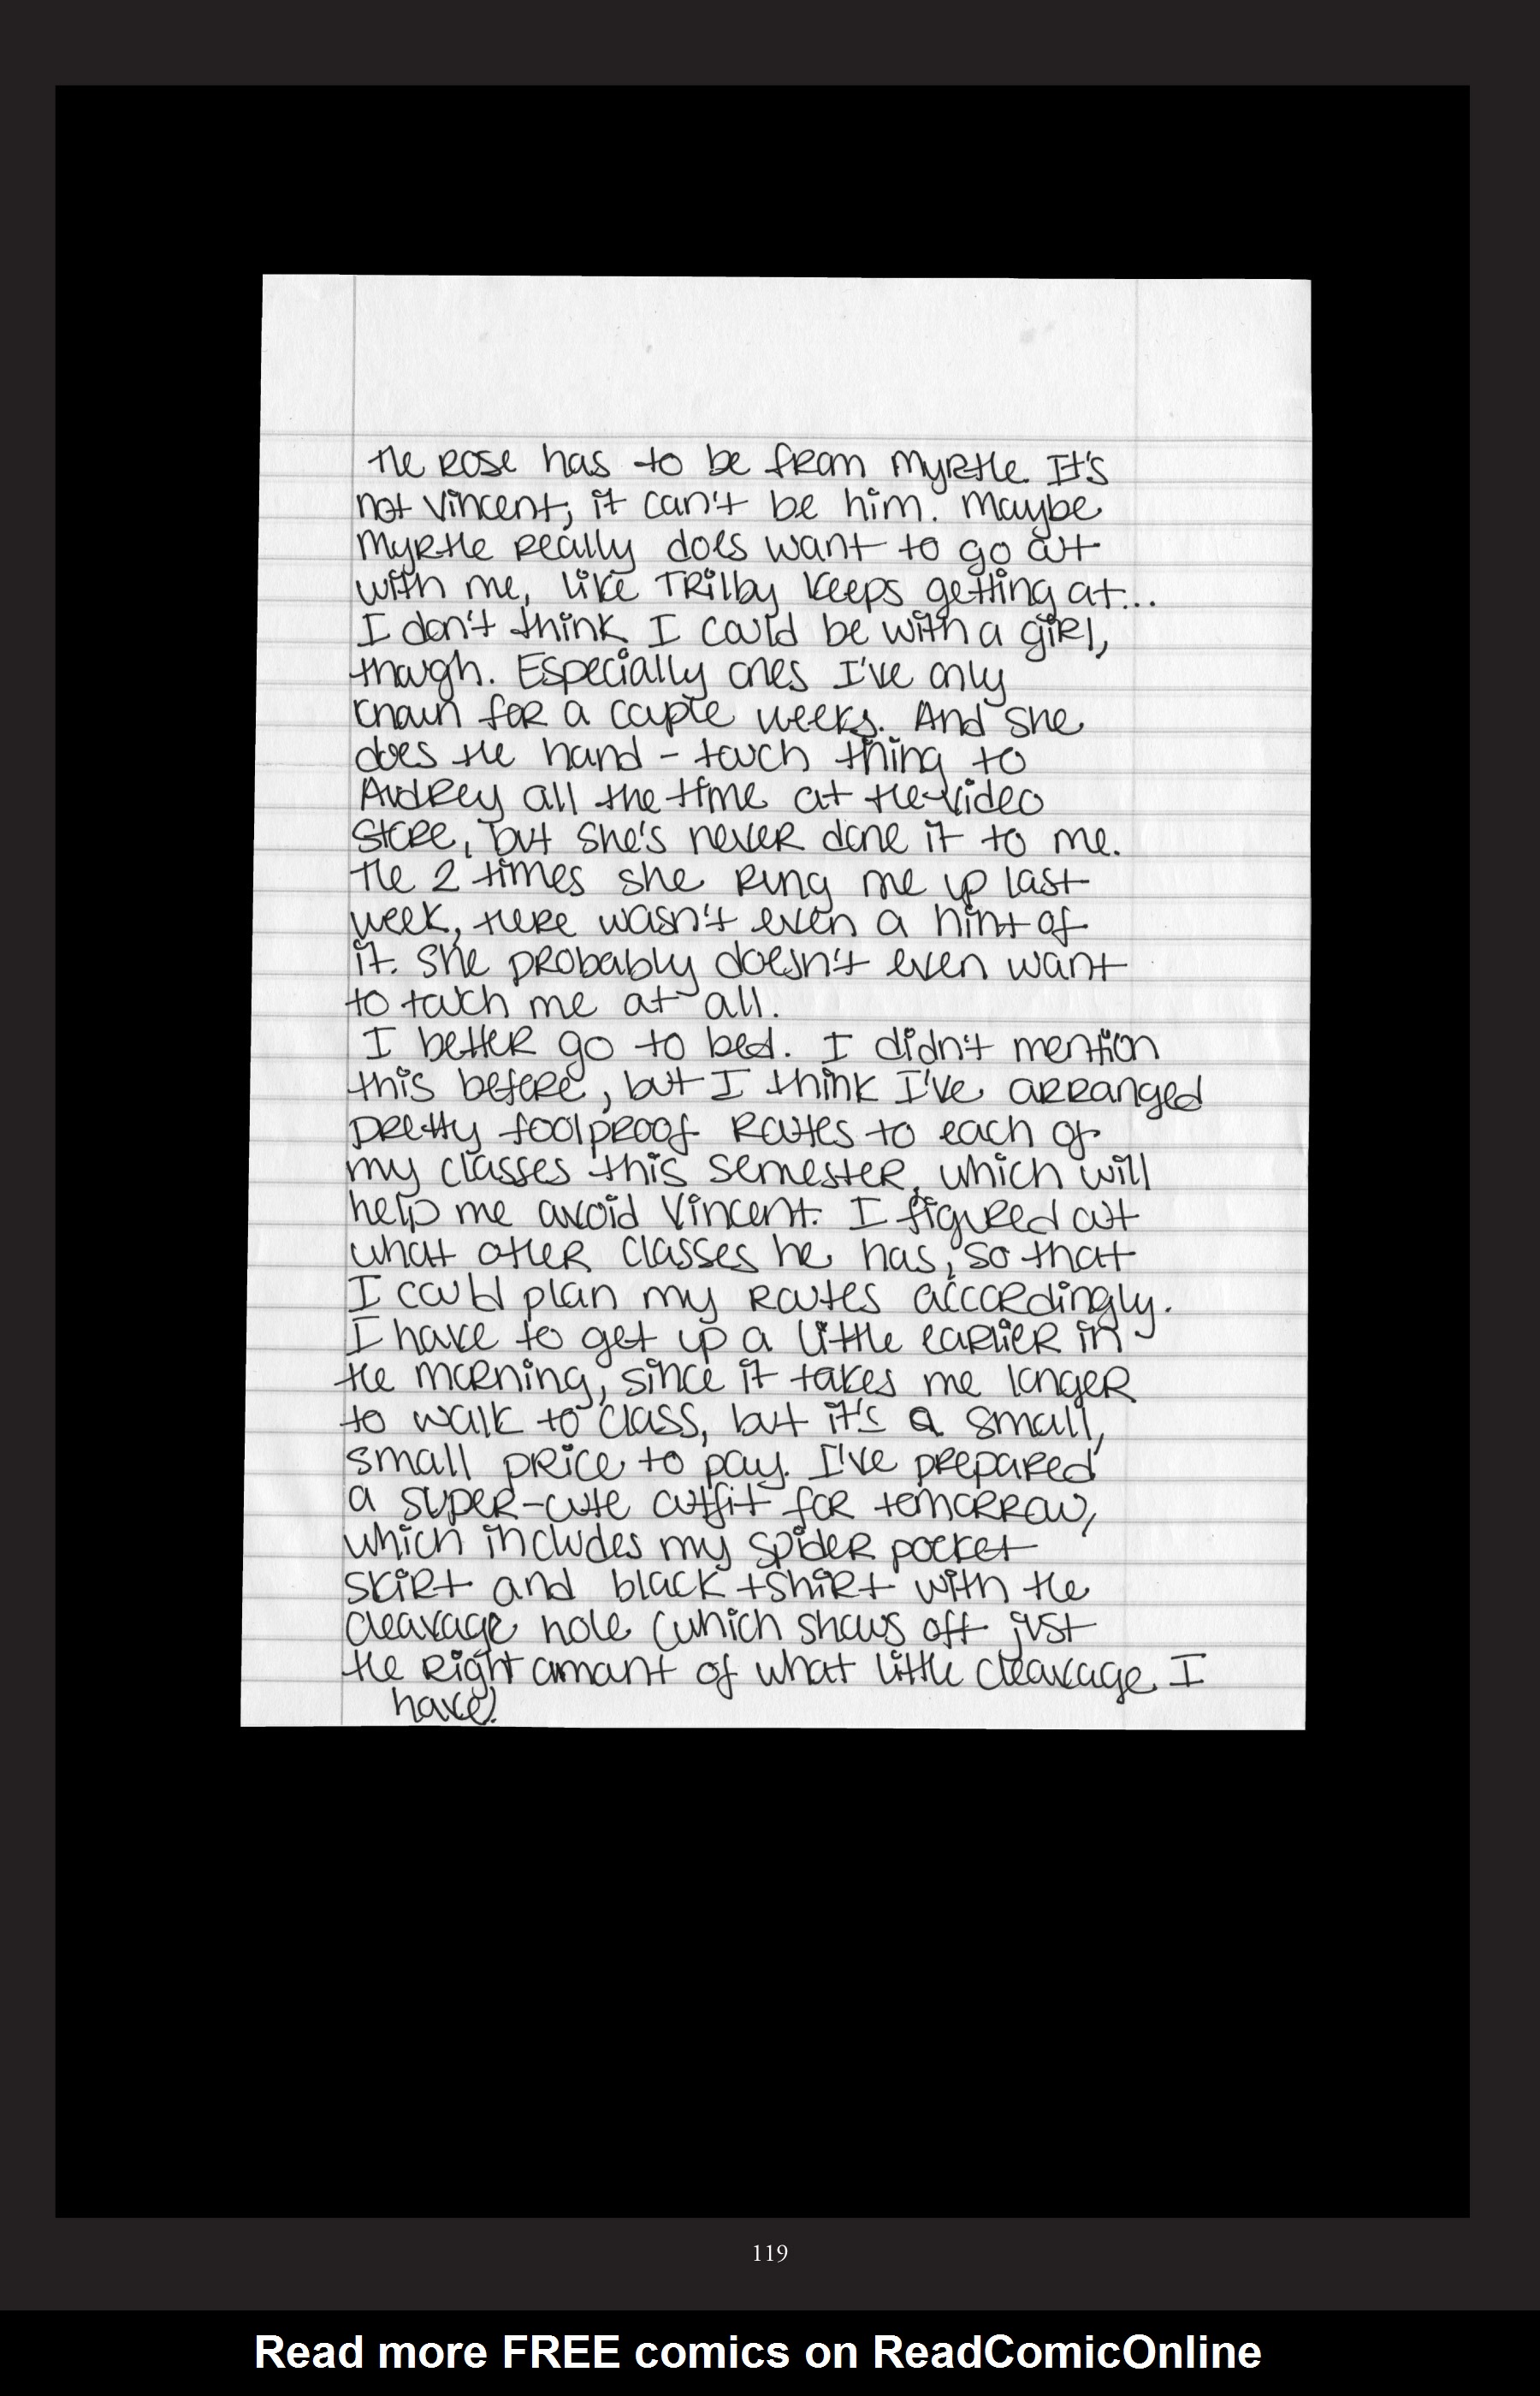 The Rose has to be from Myrtle. It's
not Vincent; it can't be him. Maybe
Myrtle really does want to go out
with me, like Trilby keeps getting at...
I don't think I could be with a girl,
though. Especially ones I've only
known for a couple weeks. And she
does the hand-touch thing to
Audrey all the time at the video
store, but she's never done it to me.
The 2 times she rung me up last
week, there wasn't even a hint of
it. She probably doesn't even want
to touch me at all.
I better go to bed. I didn't mention
this before, but I think I've arranged
pretty foolproof routes to each of
my classes this semester, which will
help me avoid Vincent. I figured out
what other classes he has, so that
I could plan my routes accordingly.
I have to get up a little earlier in
the morning, since it takes me longer
to walk to class, but it's a small,
small price to pay. I've prepared
a super-cute outfit for tomorrow,
which includes my spider pocket
skirt and black tshirt with the
cleavage hole (which shows off just
the right amount of what little cleavage I
have).
119
Read more FREE comics on ReadComicOnline